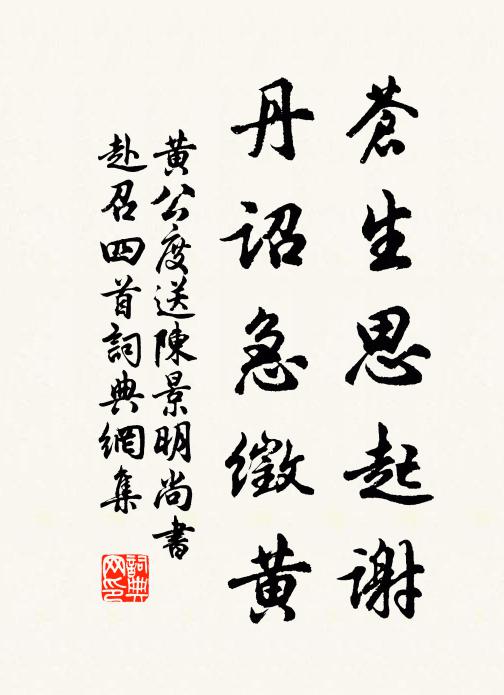 蒼生思起謝
丹詔急徵黃
黃公度送陳景明尚書
赴召四首詞典網集
詞典
网印